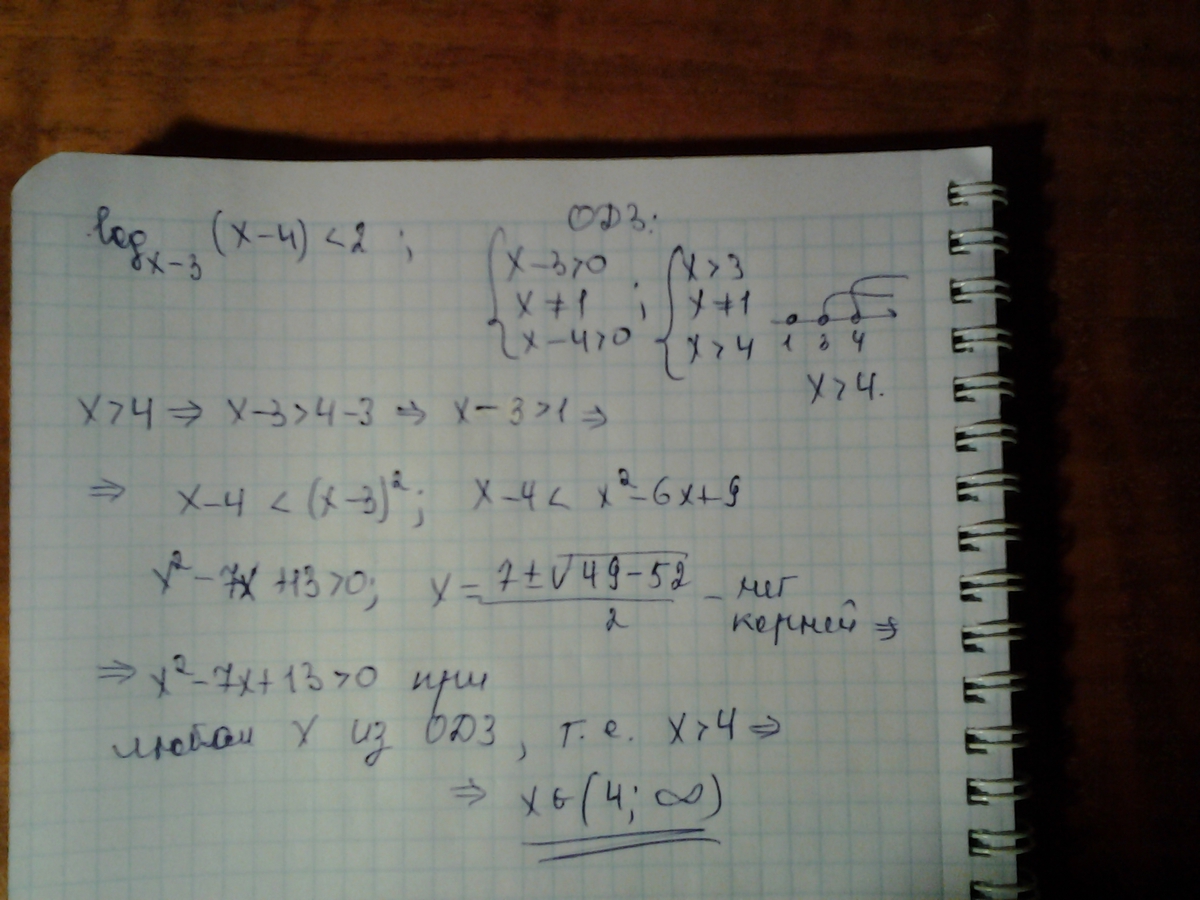 log_{x-3} (x-4) < 2 ;
ОДЗ:
{ x-3>0 ; { x>3
x ≠ 1 x ≠ 1
x-4>0 x>4
1 3 4
x>4.
x>4 ⇒ x-3>4-3 ⇒ x-3>1 ⇒
⇒ x-4 < (x-3)²; x-4 < x²-6x+9
x²-7x+13>0; x = (7±√49-52)/2 - нет
корней ⇒
⇒ x²-7x+13>0 при
любом x из ОДЗ, т.е. x>4 ⇒
⇒ x∈(4; ∞)